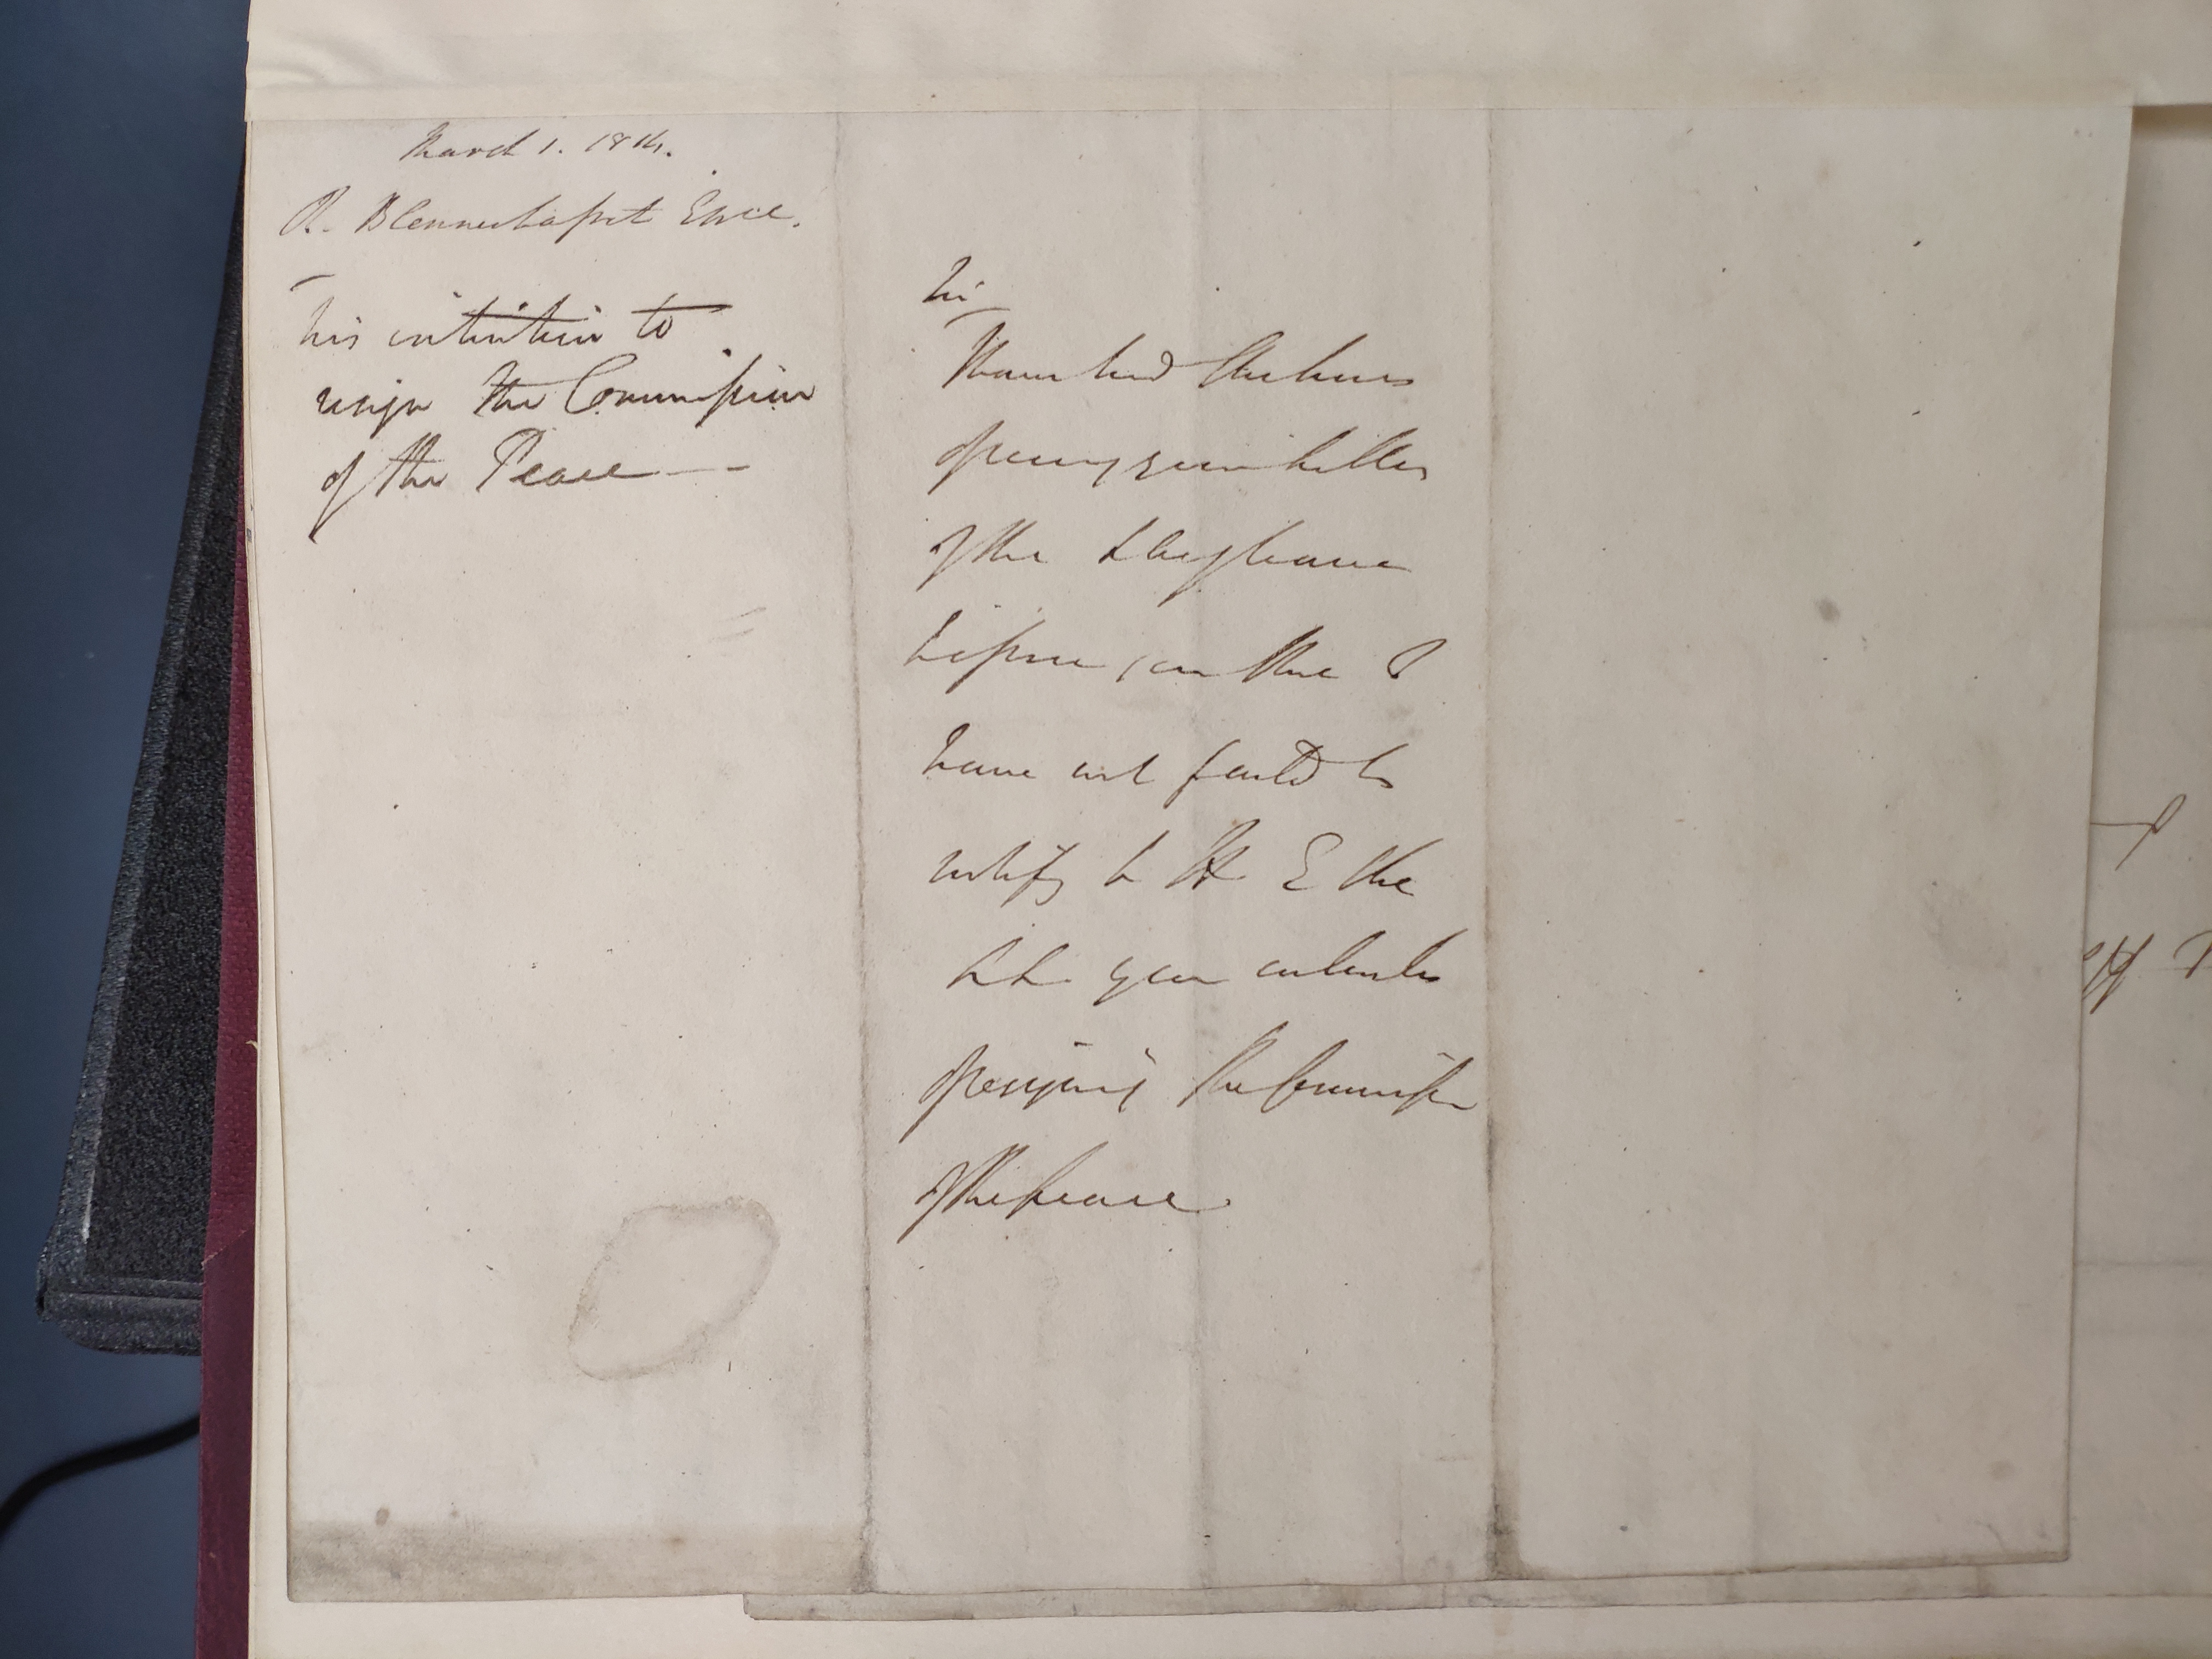 March 1. 1814.
R. Blennerhasset Esqe.
his intention to
resign the Commission
of the Peace —
Sir
I have had the honor
of receiving your letter
of the
have not failed to
notify to H E the
Ld. Lt. your intention
of resigning the Commission
of the peace